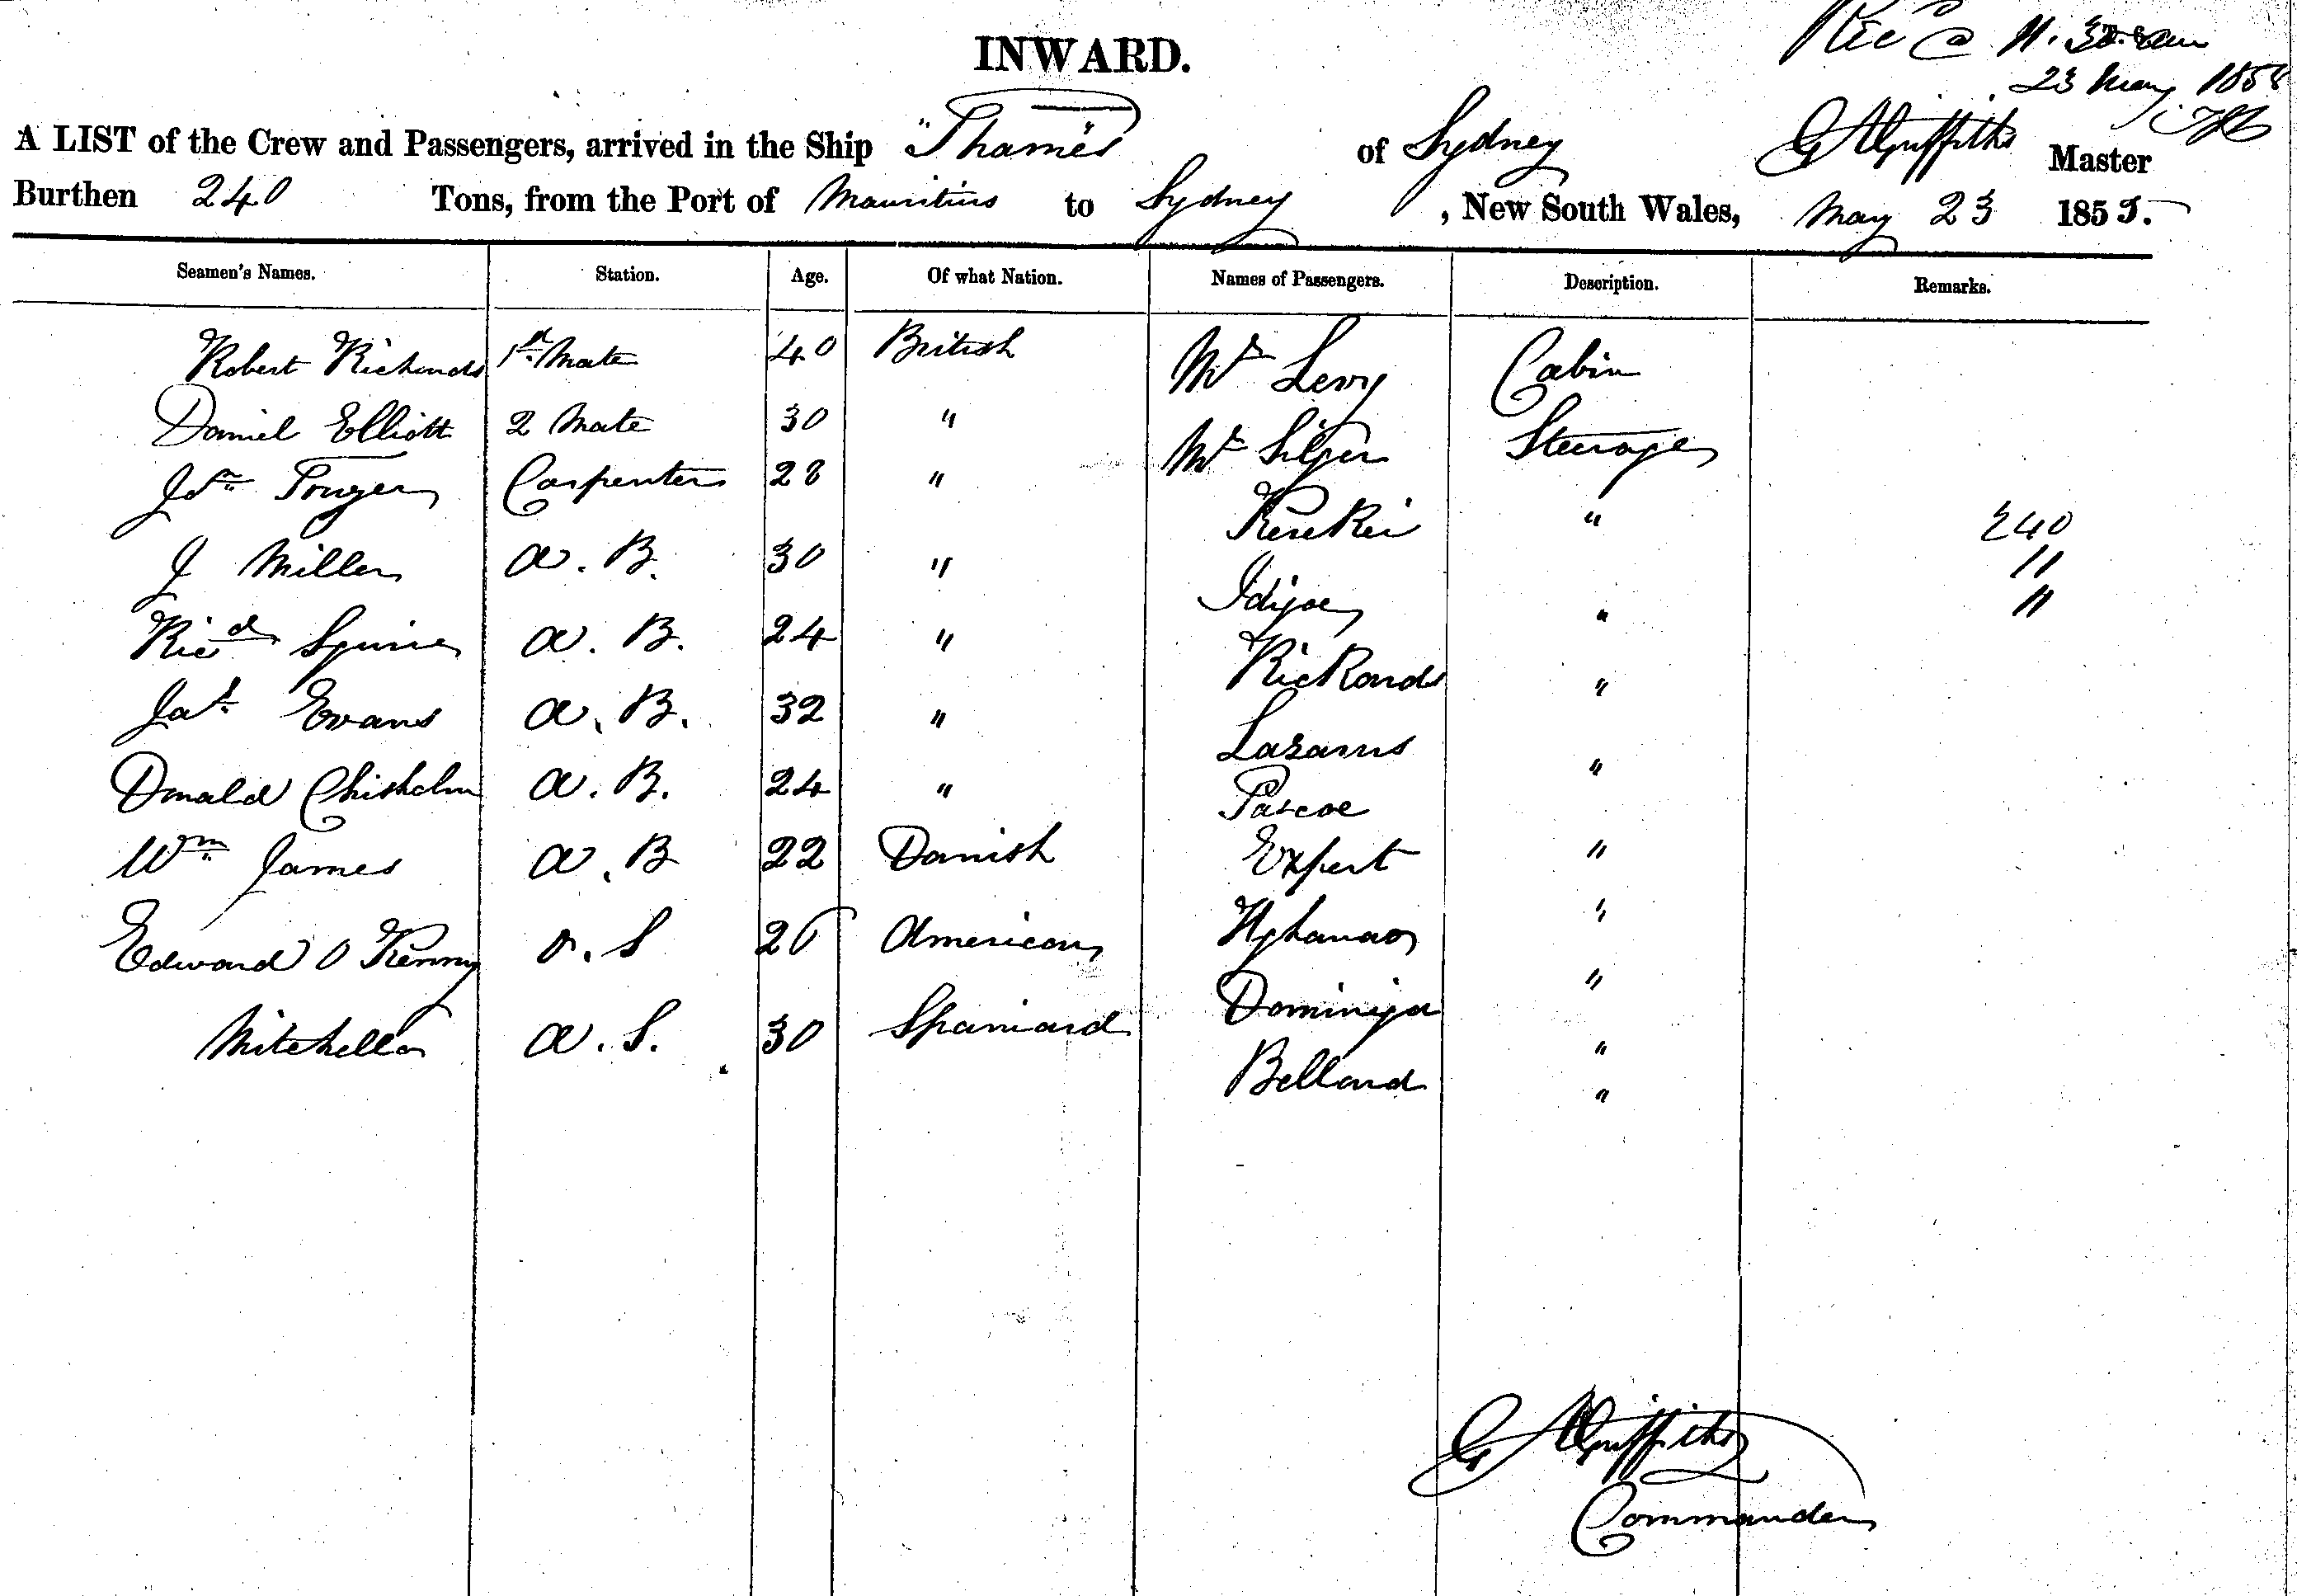 INWARD.
Rec @ 11.30 am
23 May 1855
A LIST of the Crew and Passengers, arrived in the Ship "Thames" of Sydney G Griffiths Master
Burthen 240 Tons, from the Port of Mauritius to Sydney, New South Wales, May 23 1855.
Seamen's Names. Station. Age. Of what Nation. Names of Passengers. Description. Remarks.
Robert Richards 1st Mate 40 British Mr Levy Cabin
Daniel Elliott 2 Mate 30 " Mr Silger Steerage
Jon Carpenter 28 " "
J Miller A. B. 30 " "
240
11
11
Ricd Squire A. B. 24 " Rickards "
Jas Evans A. B. 32 " Lazarus "
Donald Chisholm A. B. 24 " Pascoe
Wm James A. B 22 Danish Expert "
Edward O Kenny O. S 26 American "
Mitchella A. S. 30 Spaniard Dominga "
Bellard "
G Griffiths
Commander